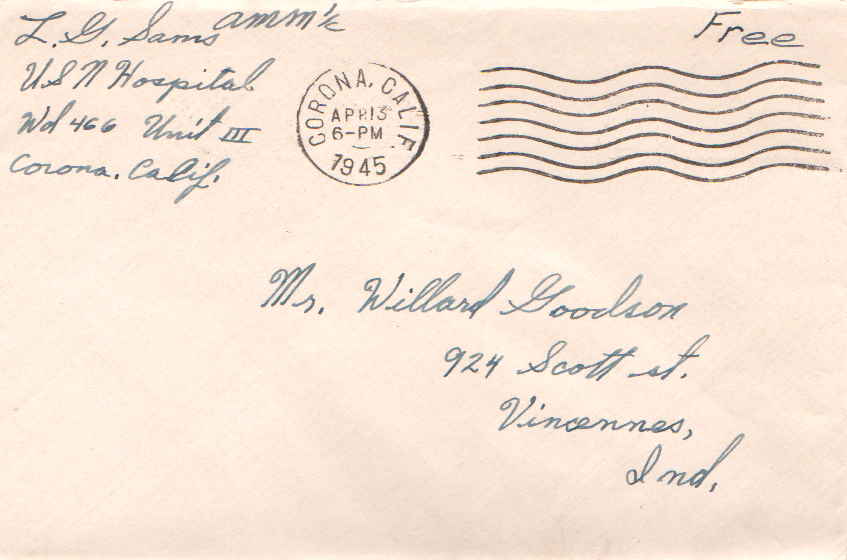 L. G. Sams amm 1/c
Free
U S N Hospital
Wd 466 Unit III
Corona. Calif.
CORONA, CALIF.
APR 13
6-PM
1945
Mr. Willard Goodson
924 Scott st.
Vincennes,
Ind.